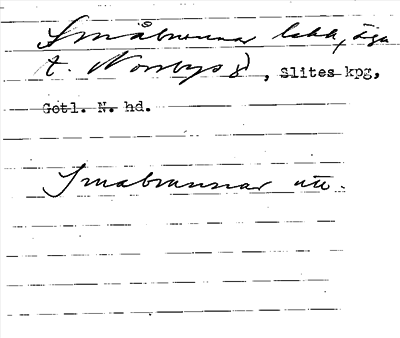 Småbrunnar lekk, äga
t. Norrbys 8, Slites kpg,
Gotl. N. hd.
Smabrunnar utt.